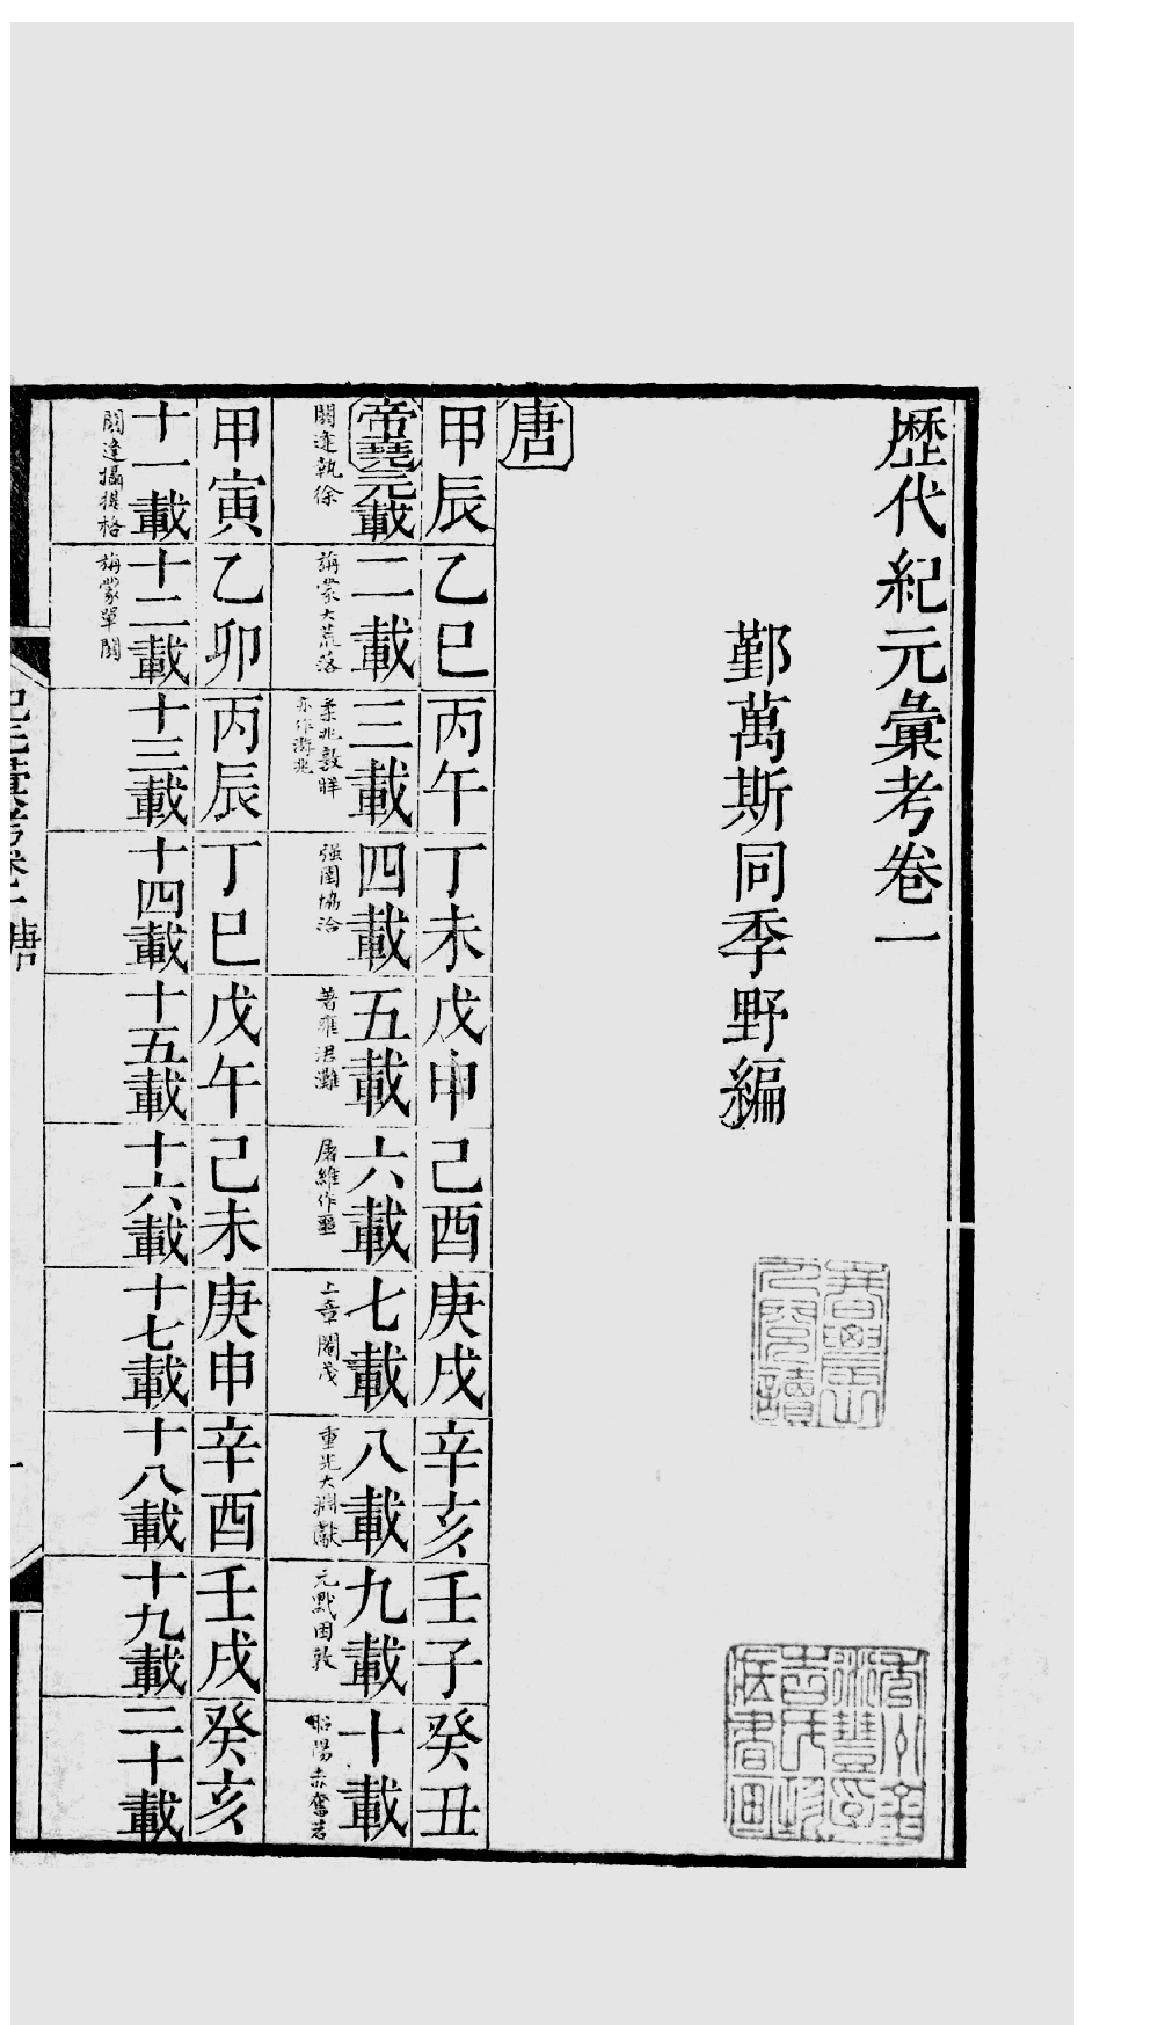 歷代紀元彙考卷一
鄞萬斯同季野編
唐
甲辰 乙巳 丙午 丁未 戊申 己酉 庚戌 辛亥 壬子 癸丑
帝堯元載 二載 三載 四載 五載 六載 七載 八載 九載 十載
閼逢執徐 旃蒙大荒落 柔兆敦牂亦作游兆 强圉協洽 著雍涒灘 屠維作噩 上章閹茂 重光大淵獻 元黓困敦 昭陽赤奮若
甲寅 乙卯 丙辰 丁巳 戊午 己未 庚申 辛酉 壬戌 癸亥
十一載 十二載 十三載 十四載 十五載 十六載 十七載 十八載 十九載 二十載
閼逢攝提格 旃蒙單閼
紀元彙考卷一 唐 一